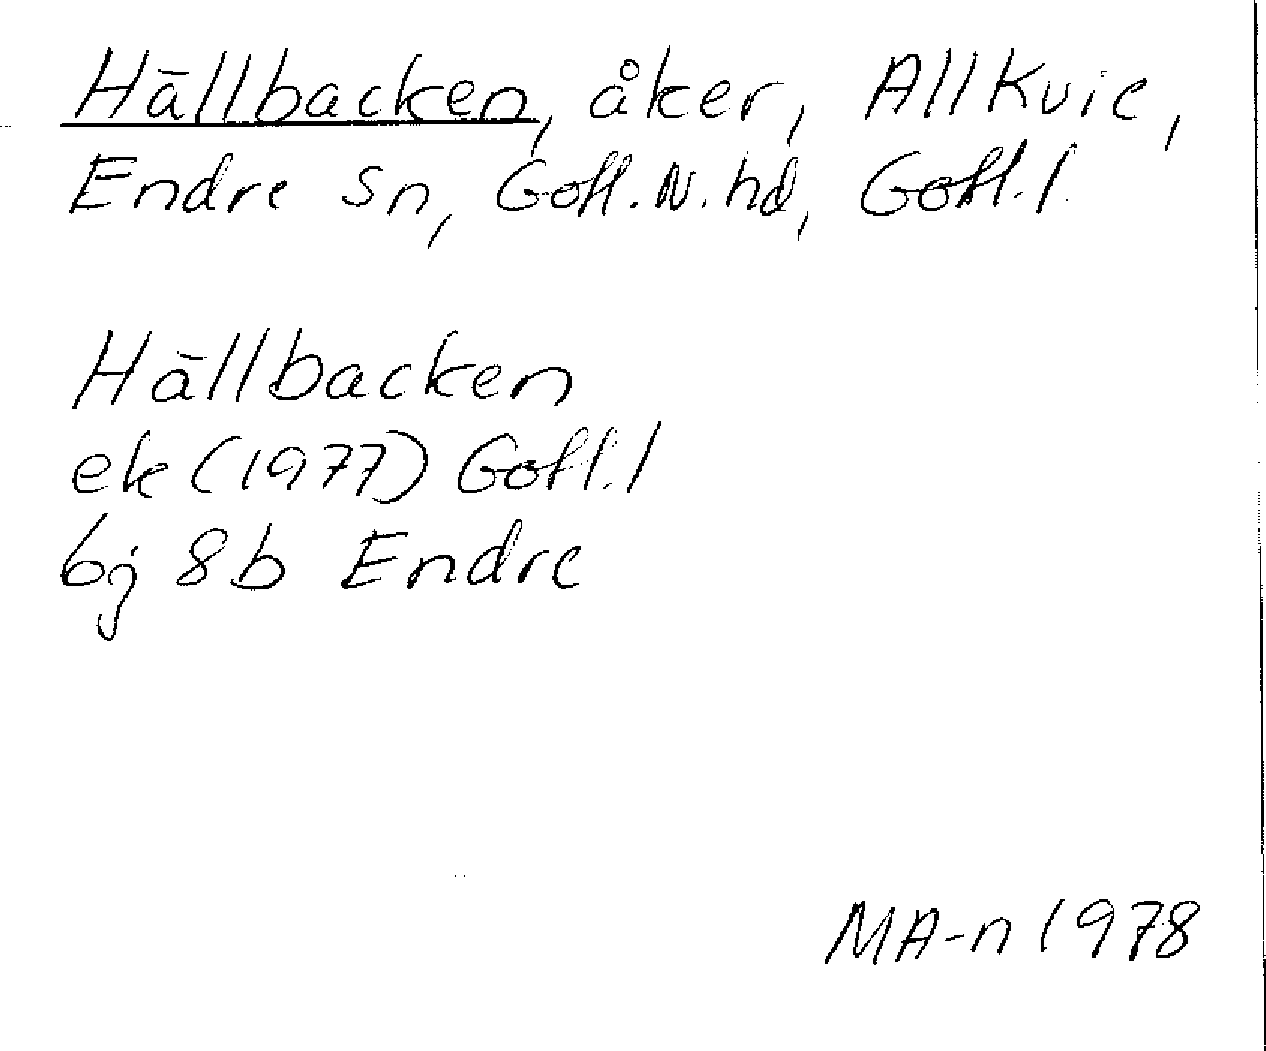 Hällbacken, åker, Allkvie,
Endre sn, Gotl.N.hd, Gotl.l.
Hällbacken
ek (1977) Gotl.l
6j 8b Endre
MA-n 1978